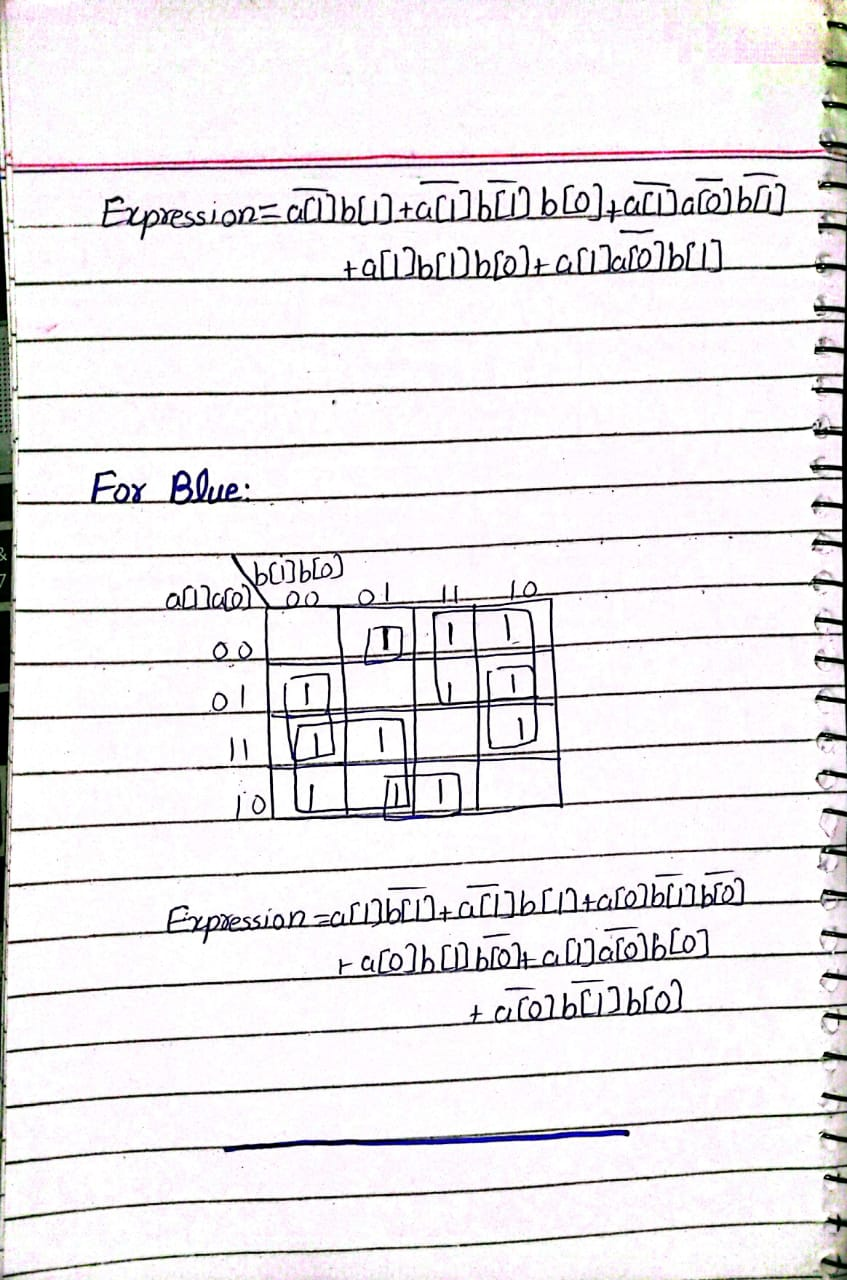 Expression = a̅[̅1̅]̅b[1] + a̅[̅1̅]̅b̅[̅1̅]̅b[0] + a̅[̅1̅]̅a̅[̅0̅]̅b̅[̅1̅]̅
+ a[1]b[1]b[0] + a[1]a̅[̅0̅]̅b[1]
For Blue:
b[1]b[0]
a[1]a[0] 00 01 11 10
00 1 1 1
01 1 1 1
11 1 1 1
10 1 1 1
Expression = a[1]b̅[̅1̅]̅ + a̅[̅1̅]̅b[1] + a[0]b̅[̅1̅]̅b̅[̅0̅]̅
+ a[0]b[1]b̅[̅0̅]̅ + a[1]a̅[̅0̅]̅b[0]
+ a̅[̅0̅]̅b̅[̅1̅]̅b[0]